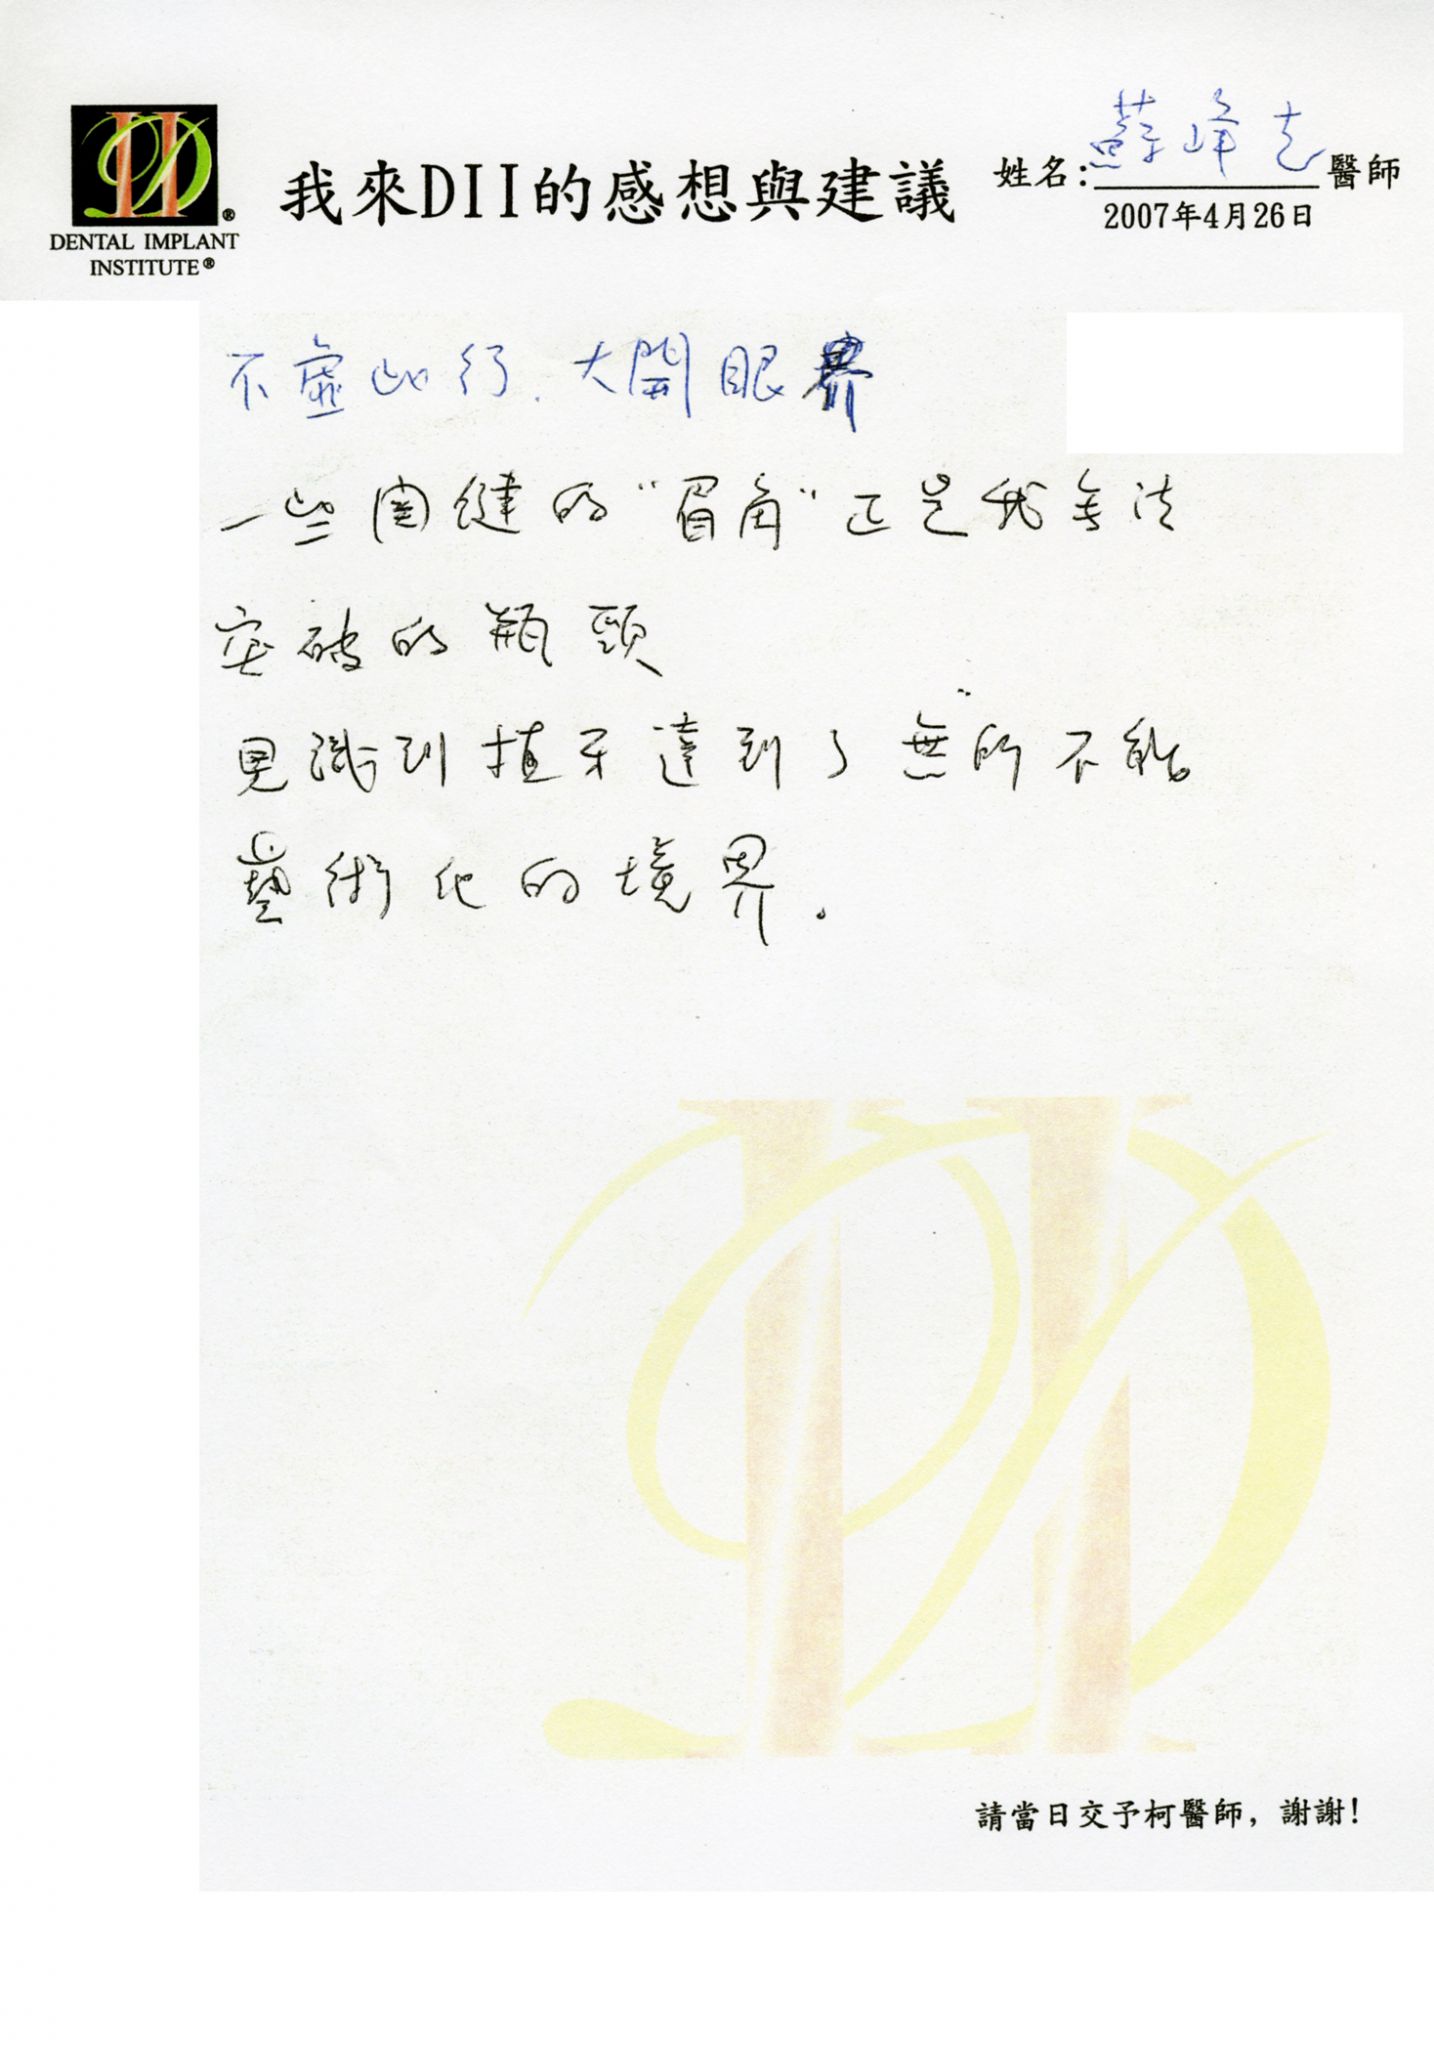 我來DII的感想與建議
姓名:蘇峰志醫師
2007年4月26日
DENTAL IMPLANT
INSTITUTE®
不虛此行.大開眼界
一些關鍵的"眉角"正是我無法
突破的瓶頸
見識到植牙達到了無所不能
藝術化的境界.
請當日交予柯醫師,謝謝!